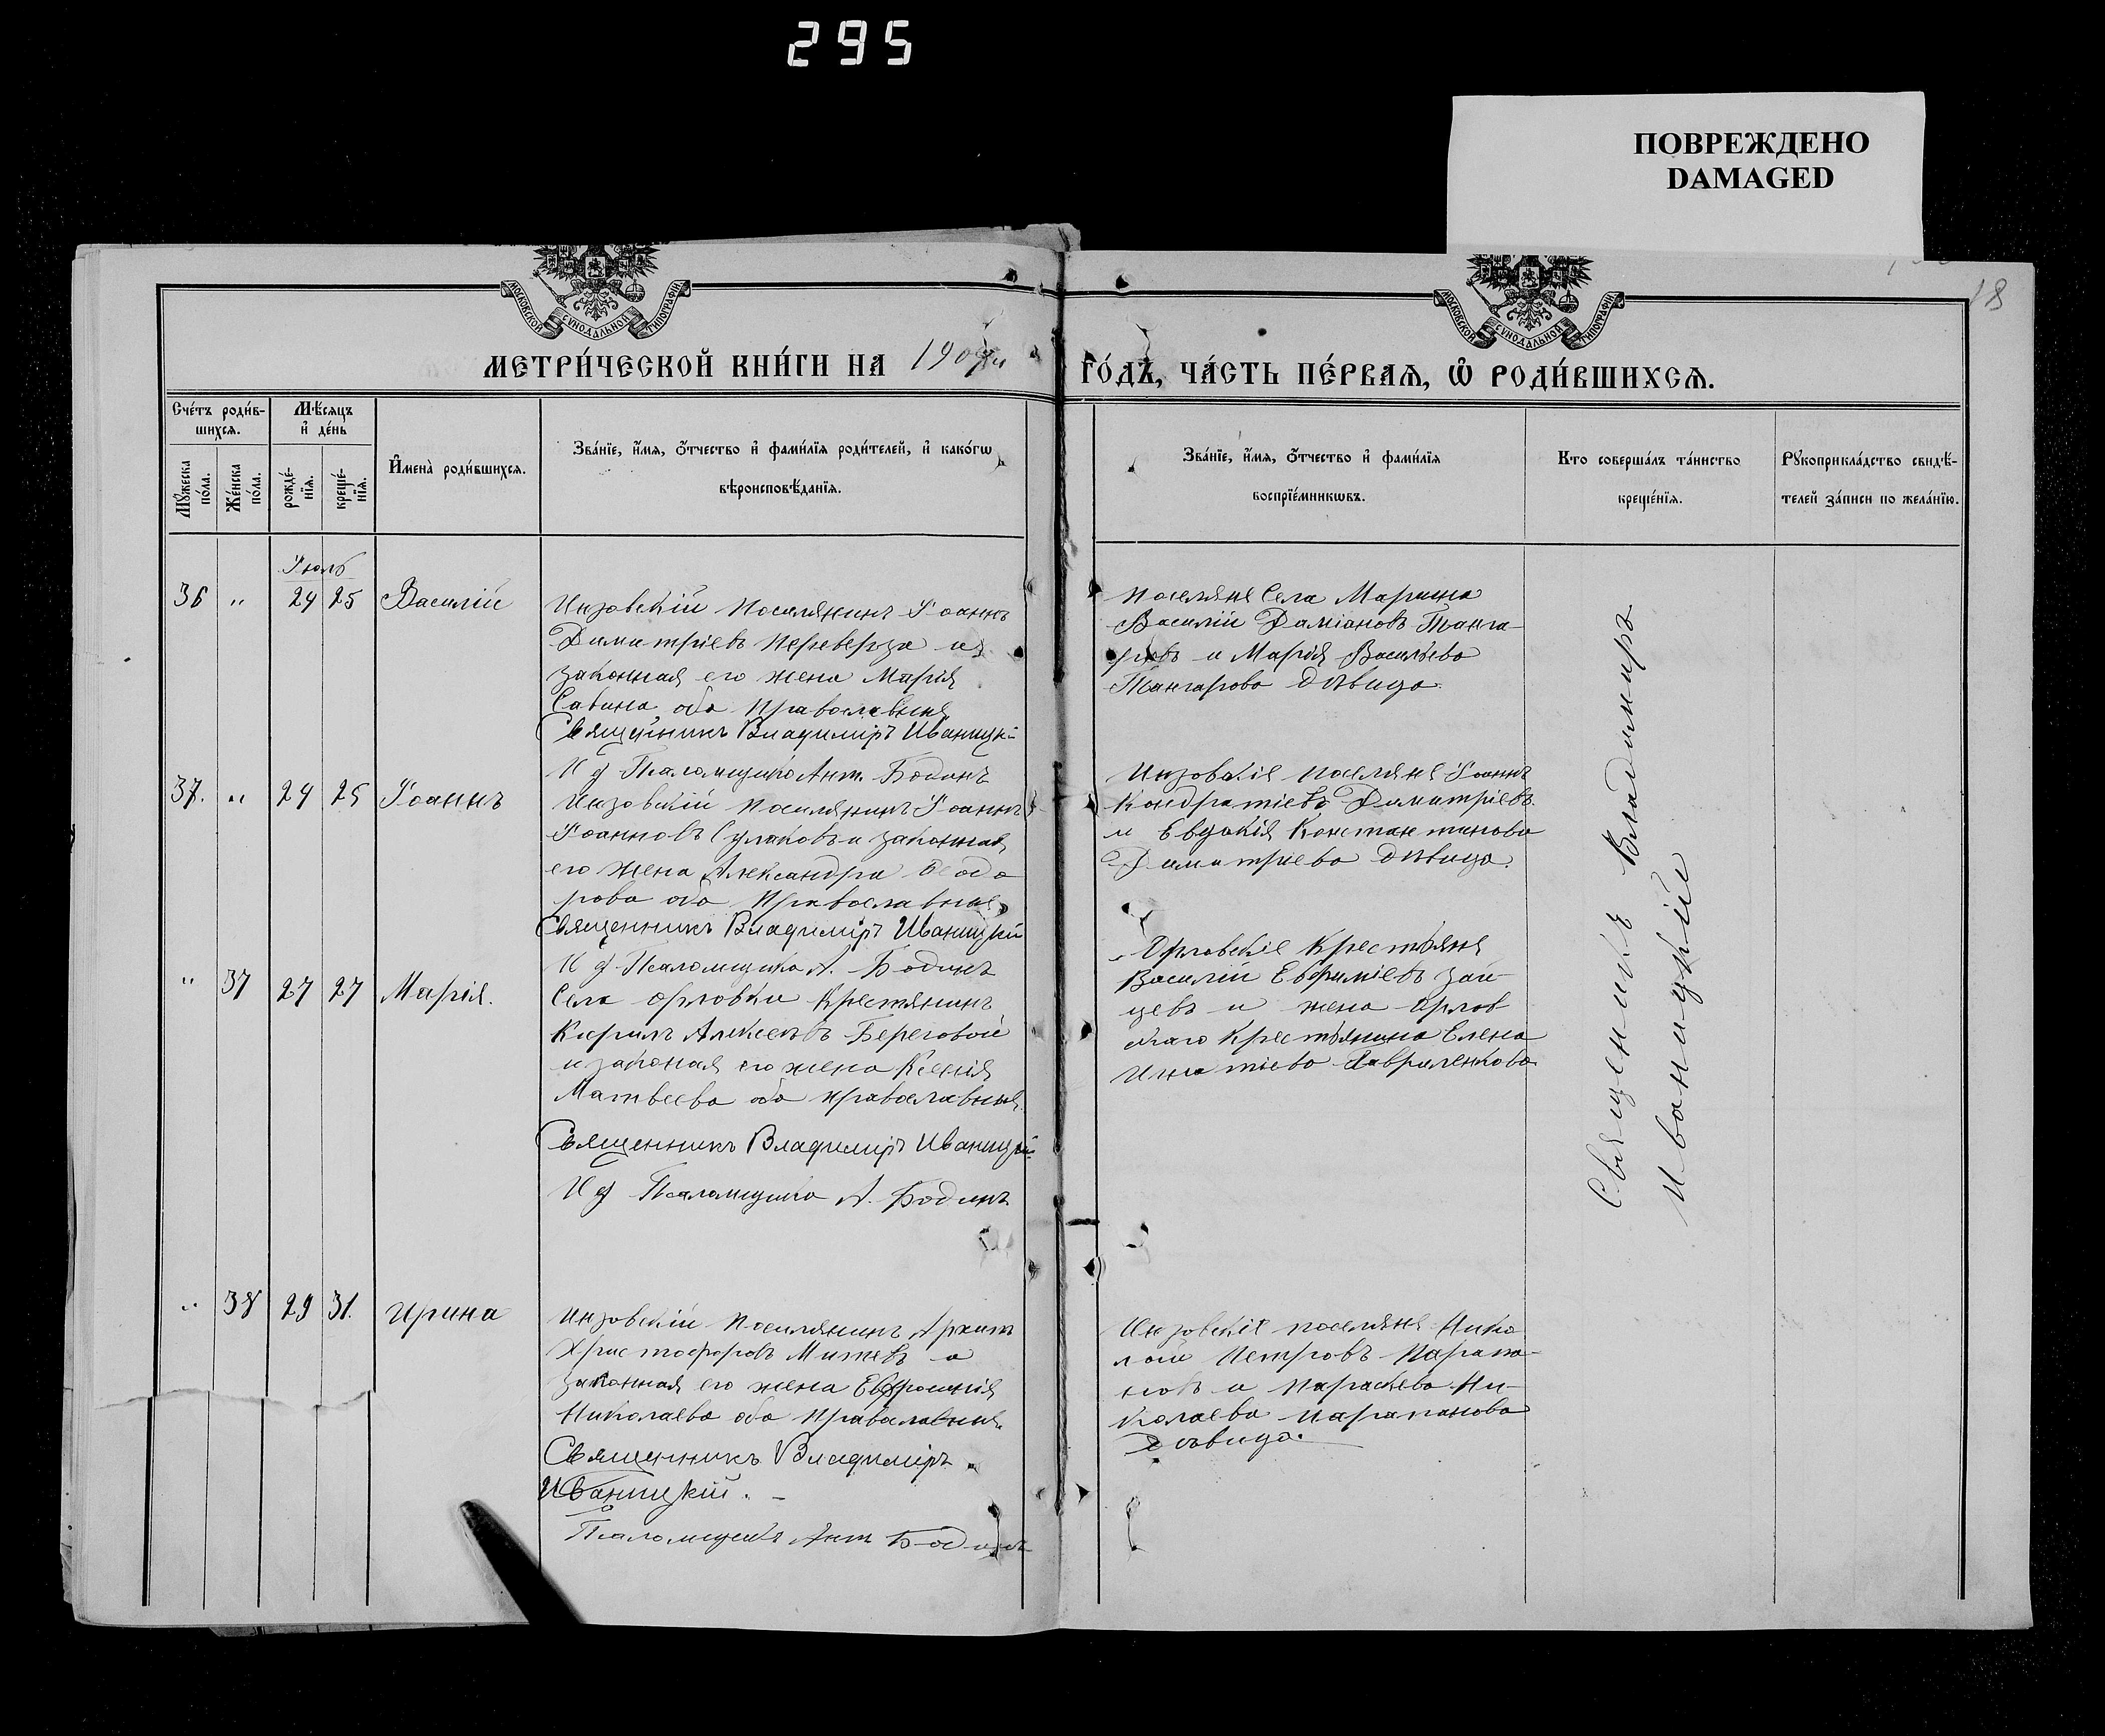 295
ПОВРЕЖДЕНО
DAMAGED
18
МОСКОВСКОЙ СѴНОДАЛЬНОЙ ТИПОГРАФІИ
МОСКОВСКОЙ СѴНОДАЛЬНОЙ ТИПОГРАФІИ
МЕТРИ́ЧЕСКОЙ КНИ́ГИ НА 190
ГО́ДЪ, ЧА́СТЬ ПЕ́РВАѦ, Ѽ РОДИ́ВШИХСѦ.
Сче́тъ роди́в-
шихсѧ.
Мꙋ́жеска по́ла.
Же́нска по́ла.
Мѣ́сѧцъ
и҆ де́нь
рожде́-нїѧ.
креще́-нїѧ.
И҆мена̀ роди́вшихсѧ.
Зва́нїе, и҆́мѧ, ѻ҆́тчество и҆ фами́лїѧ роди́телей, и҆ како́гѡ
вѣроисповѣ́данїѧ.
Зва́нїе, и҆́мѧ, ѻ҆́тчество и҆ фами́лїѧ
воспрїе́мникѡвъ.
Кто соверша́лъ та́инство
креще́нїѧ.
Рꙋкоприкла́дство свидѣ́-
телей за́писи по жела́нїю.
Іюль
36 " 24 25 Василій
Инзовскій поселянинъ Іоаннъ
Димитріевъ Переверза и
законная его жена Марія
Савина оба православные
Священникъ Владиміръ Иваницкій
И д Псаломщика Ант. Бодинъ
поселяне села
Василій Даміановъ Танга-
ровъ и Марія Васильева
Тангарова дѣвица.
37. " 24 25 Іоаннъ
Инзовскій поселянинъ Іоаннъ
Іоанновъ Сулаковъ и законная
его жена Александра Ѳеодо
рова оба православные
Священникъ Владиміръ Иваницкій
И д Псаломщика А. Бодинъ
Инзовскіе поселяне Іоаннъ
Кондратіевъ Димитріевъ
и Евдокія Константинова
Димитріева дѣвица.
" 37 27 27 Марія.
Села Орловки крестянинъ
Кирилъ Алексеевъ Береговой
и законая его жена Ксенія
Матвеева оба православные.
Священникъ Владиміръ Иваницкій
И д Псаломщика А. Бодинъ
Орловскіе крестьяне
Василій Евфиміевъ Зай-
цевъ и жена Орлов
скаго крестьянина Елена
Игнатіева Гавриленкова
" 38 29 31. Ирина
Инзовскій поселянинъ
Христофоровъ и
законная его жена Евфросинія
Николаева оба православные.
Священникъ Владиміръ
Иваницкій. -
Псаломщикъ Ант Бодинъ
Инзовскіе поселяне Нико
лай Петровъ Карапа-
новъ и Параскева Ни-
колаева Карапанова
дѣвица.
Священникъ Владимиръ
Иваницкій